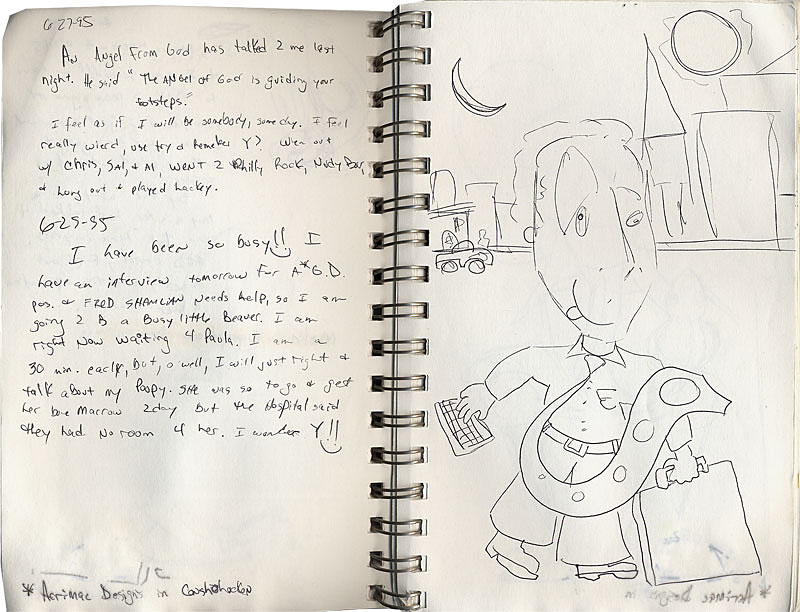 6-27-95
An Angel From God has talked 2 me last
night. He said "The ANGEL of GOD is guiding your
footsteps."
I feel as if I will be somebody, some day. I feel
really wierd, use try & remeber Y? Wen out
w/ Chris, SAL, & Al, WENT 2 Philly Rock, Nudy Bar,
& hung out & played hackey.
6-29-95
I have been so busy!! I
have an interview tomorrow For A*G.D.
pos. & FRED SHAMLIAN Needs help, so I am
going 2 B a Busy little Beaver. I am
right Now Waiting 4 Paula. I am a
30 min. early, But, o well, I will just right &
talk about my Poopy. SHE was so to go & get
her bone Marrow 2day but the Hospital said
they had No room 4 her. I wonder Y!!
* Acrimac Designs in Conshohocken